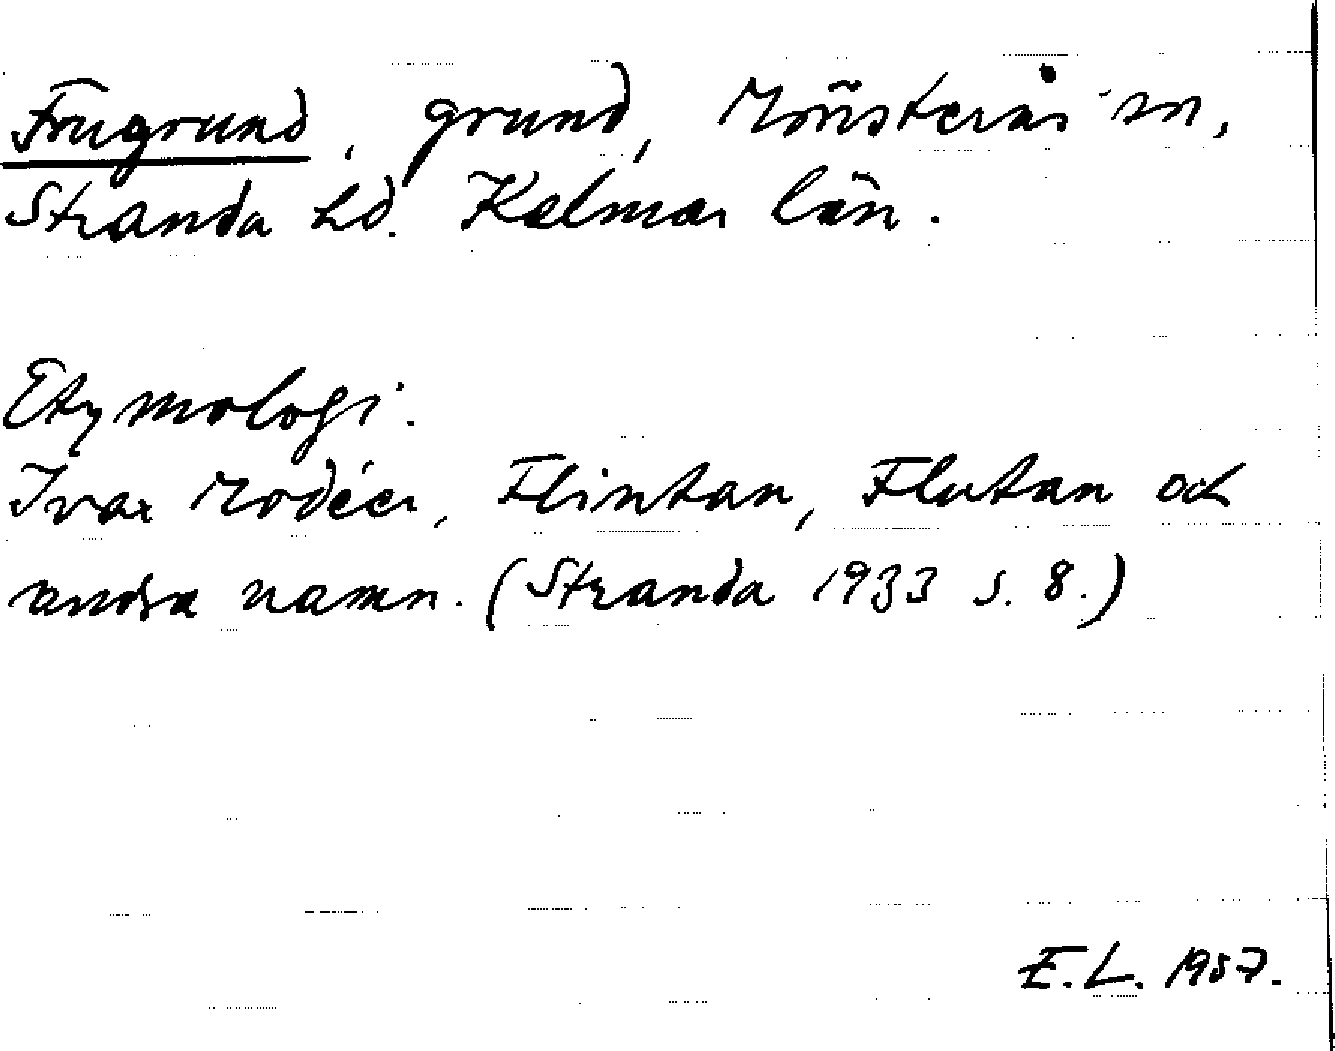 Frugrund, grund, Mönsterås sn,
Stranda hd. Kalmar län.
Etymologi.
Ivar Modéer, Flintan, Flutan och
andra namn. (Stranda 1933 s. 8.)
E.L. 1957.